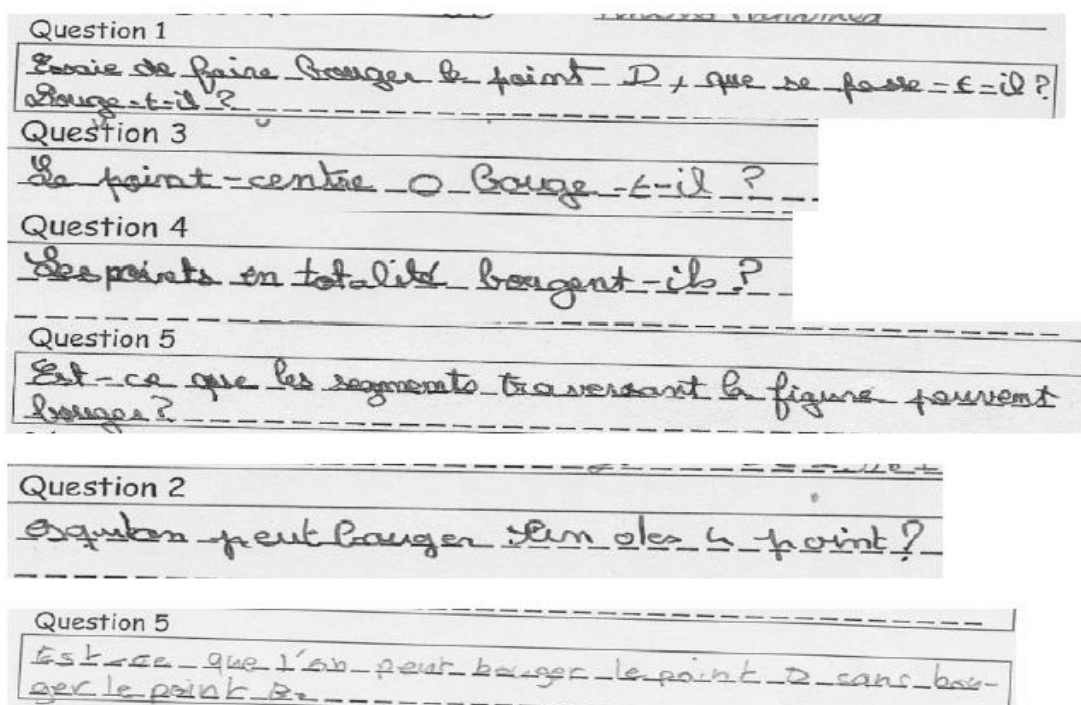 Question 1
Essaie de faire bouger le point D, que se passe-t-il?
Bouge-t-il?
Question 3
Le point-centre O bouge-t-il ?
Question 4
Les points en totalité bougent-ils ?
Question 5
Est-ce que les segments traversant la figure peuvent
bouger?
Question 2
esquton peut bouger l'un des 4 point?
Question 5
Est-ce que l'on peut bouger le point D sans bou-
ger le point B.